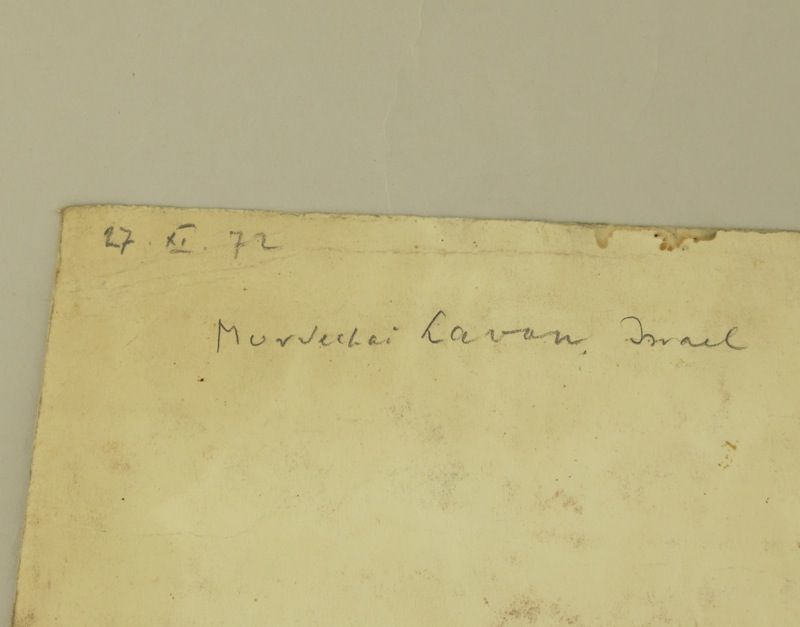 27. XI. 72
Mordechai Lavon, Israel